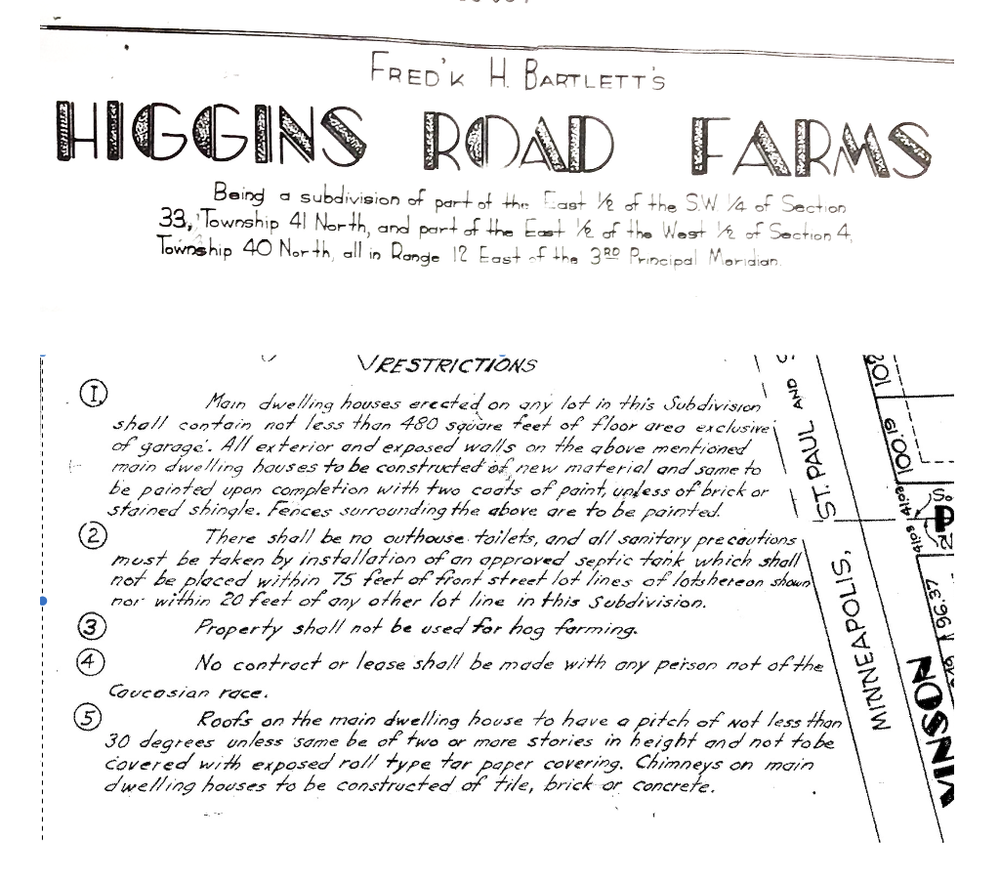 FRED'K H. BARTLETT'S
HIGGINS ROAD FARMS
Being a subdivision of part of the East 1/2 of the S.W. 1/4 of Section
33, Township 41 North, and part of the East 1/2 of the West 1/2 of Section 4,
Township 40 North, all in Range 12 East of the 3RD Principal Meridian.
RESTRICTIONS
1. Main dwelling houses erected on any lot in this Subdivision
shall contain not less than 480 square feet of floor area exclusive
of garage. All exterior and exposed walls on the above mentioned
main dwelling houses to be constructed of new material and same to
be painted upon completion with two coats of paint, unless of brick or
stained shingle. Fences surrounding the above are to be painted.
2 There shall be no outhouse toilets, and all sanitary precautions
must be taken by installation of an approved septic tank which shall
not be placed within 75 feet of front street lot lines of lots hereon shown
nor within 20 feet of any other lot line in this Subdivision.
3 Property shall not be used for hog farming.
4 No contract or lease shall be made with any person not of the
Caucasian race.
5 Roofs on the main dwelling house to have a pitch of not less than
30 degrees unless same be of two or more stories in height and not to be
covered with exposed roll type tar paper covering. Chimneys on main
dwelling houses to be constructed of tile, brick or concrete.
MINNEAPOLIS, ST. PAUL AND
100.19
96.37